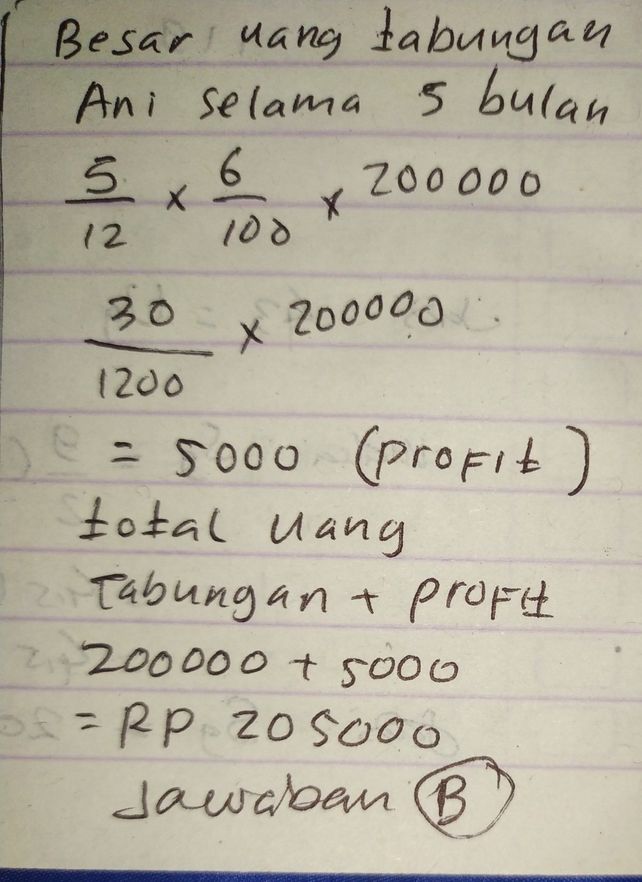 Besar uang tabungan
Ani selama 5 bulan
5/12 x 6/100 x 200000
30/1200 x 200000
= 5000 (profit)
total uang
Tabungan + profit
200000 + 5000
= RP 205000
Jawaban B